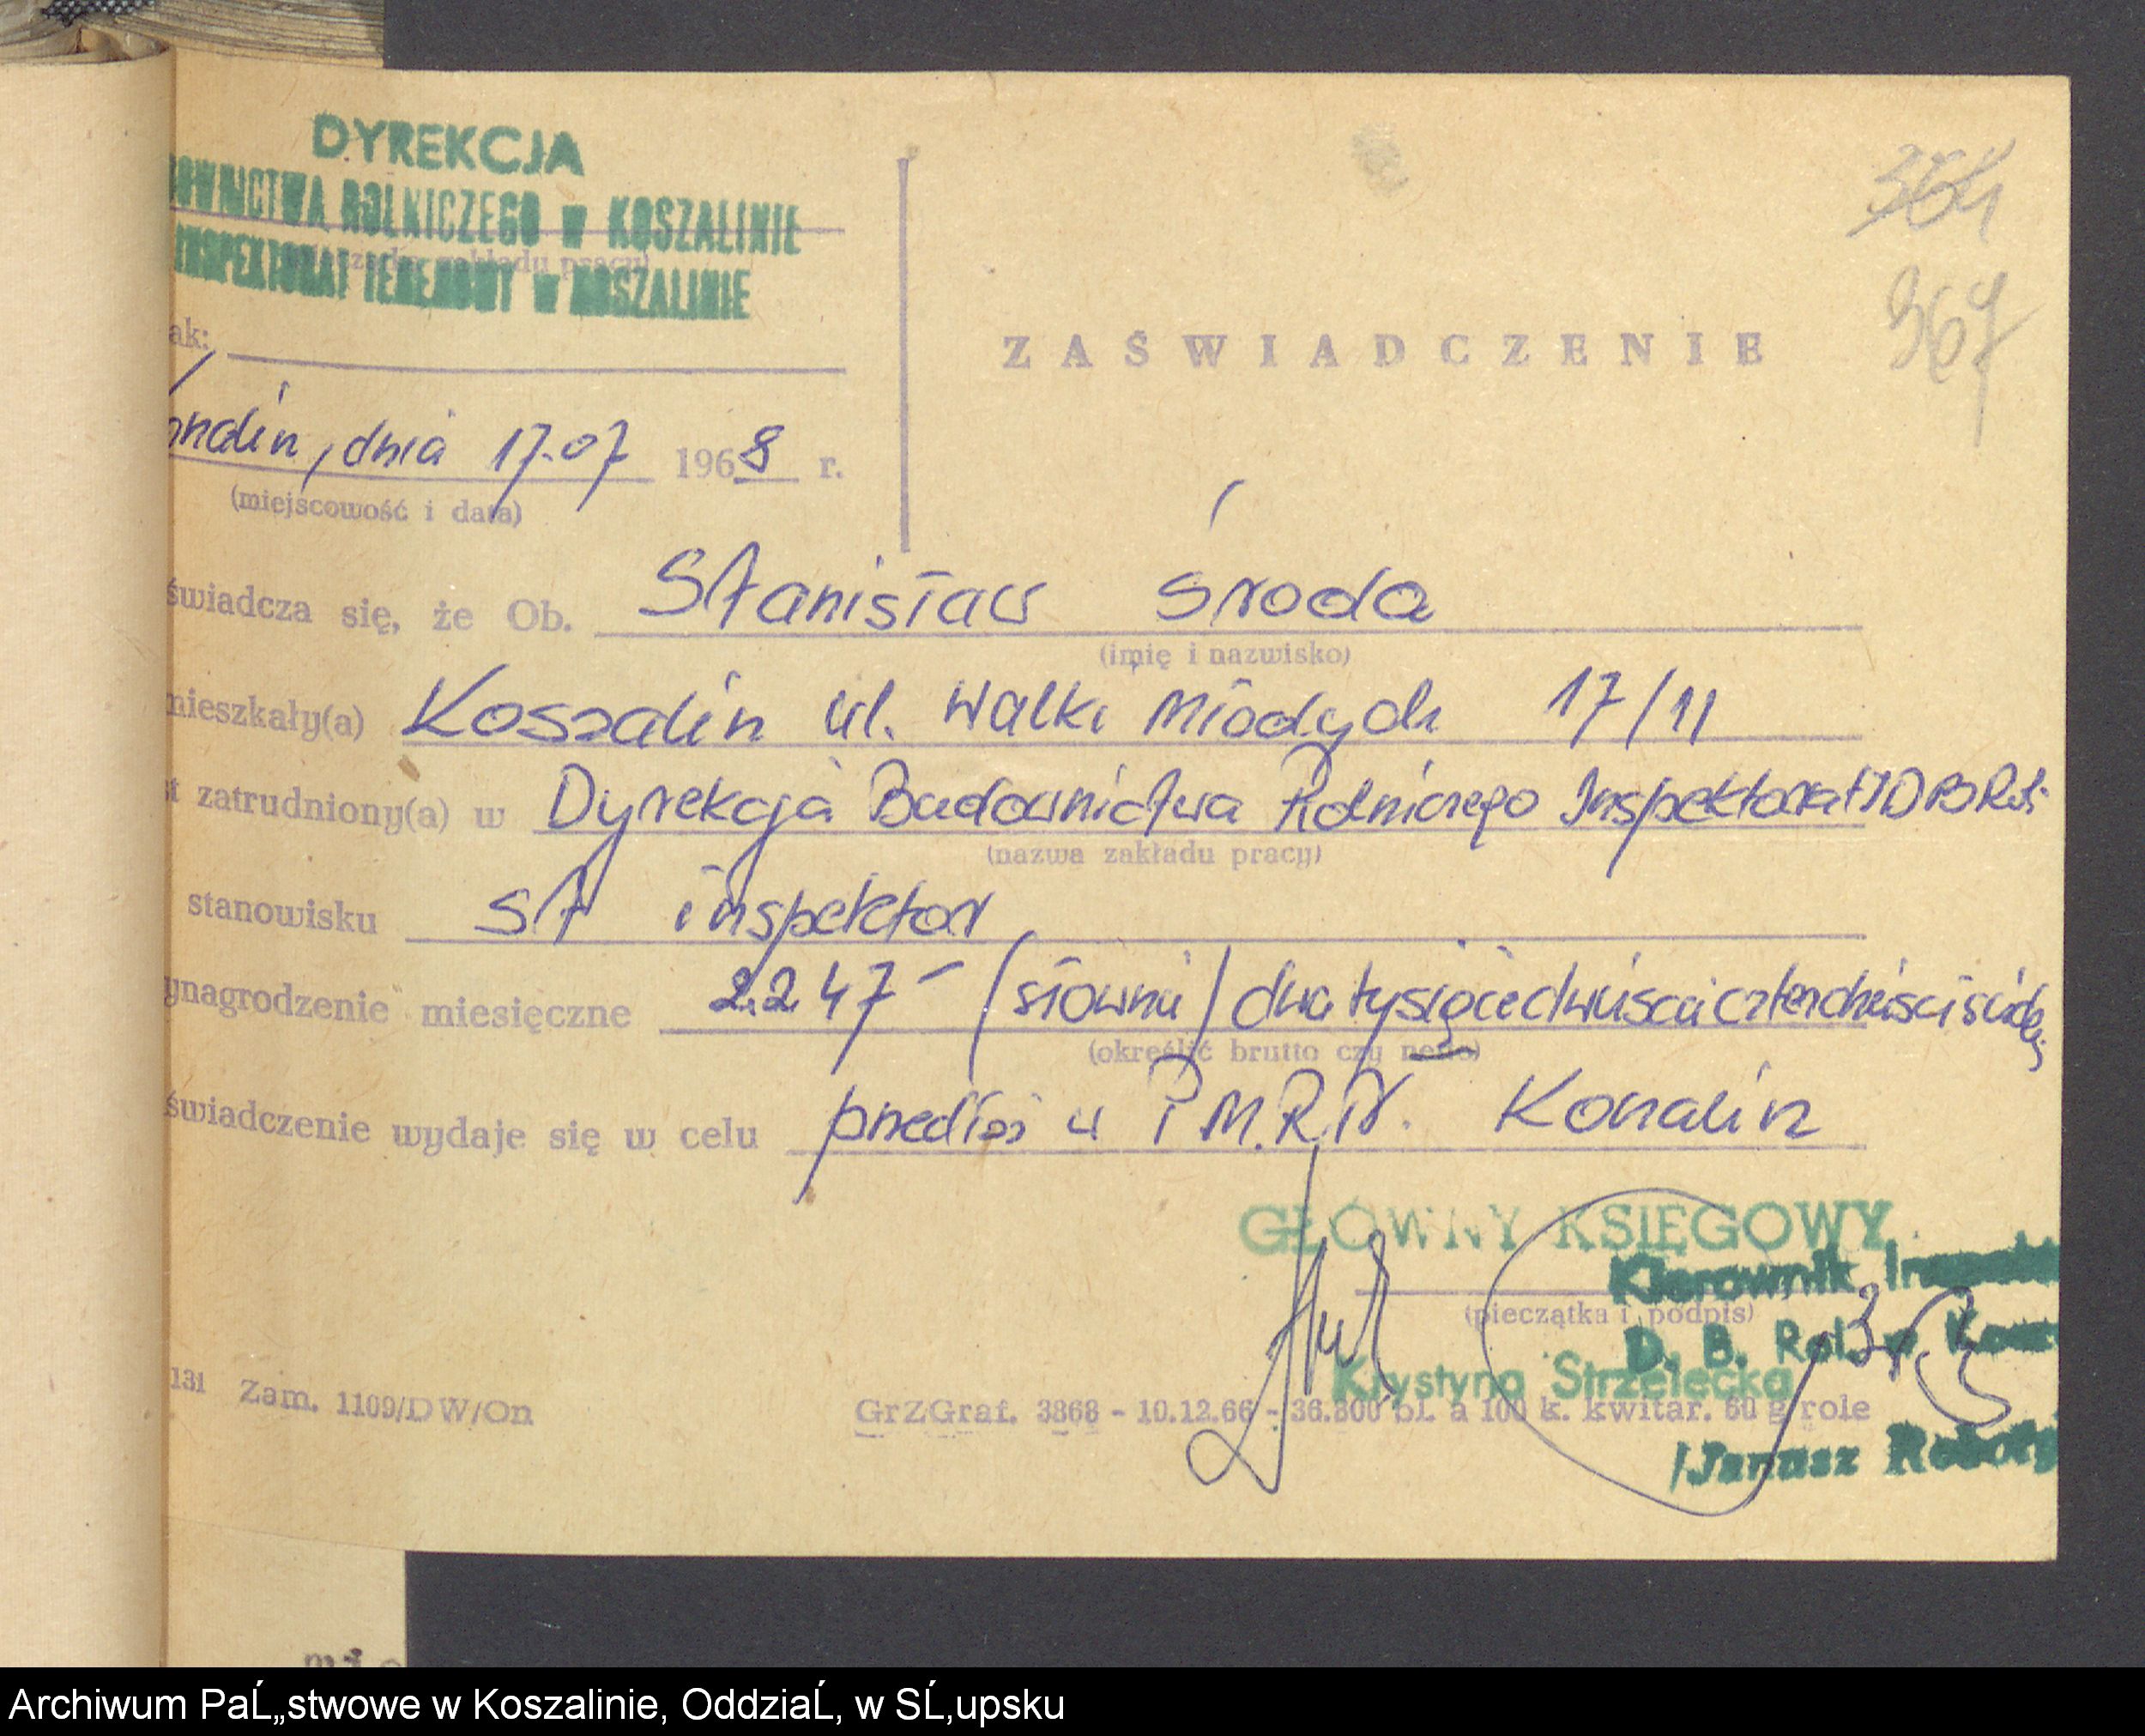 DYREKCJA
OWNICTWA ROLNICZEGO w KOSZALINIE
INSPEKTORAT TERENOWY w KOSZALINIE
zakładu pracy)
ak:
364
367
ZAŚWIADCZENIE
, dnia 17.07 1968 r.
(miejscowość i data)
świadcza się, że Ob. Stanisław Środa
(imię i nazwisko)
mieszkały(a) Koszalin ul. Walki Młodych 17/11
t zatrudniony(a) w Dyrekcja Budownictwa Rolniczego Inspektorat
(nazwa zakładu pracy)
stanowisku st inspektor
ynagrodzenie miesięczne 2.247 - (słownie) dwa tysiące dwieście czterdzieści siedem
(określić brutto czy netto)
świadczenie wydaje się w celu w P.M.R.N. Koszalin
GŁÓWNY KSIĘGOWY
Kierownik
(pieczątka i podpis)
D. B. Rol. w Kosz
Krystyna Strzelecka
131 Zam. 1109/DW/On GrZGraf. 3868 - 10.12.66 - 36.800 bl. a 100 k. kwitar. 60 g role
/Janusz
Archiwum PaĹ„stwowe w Koszalinie, OddziaĹ‚ w SĹ‚upsku